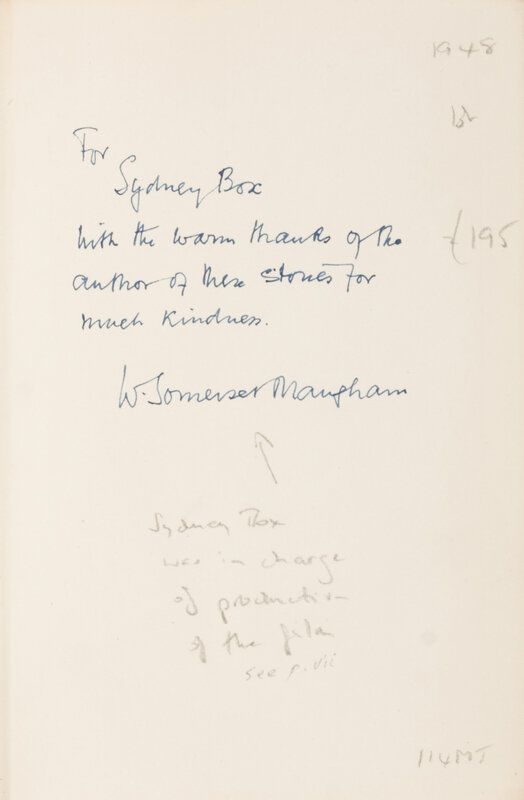 1948
For
Sydney Box
with the warm thanks of the
author of these stories for
much kindness.
£195
W. Somerset Maugham
Sydney Box
was in charge
of production
of the film
see p. vii